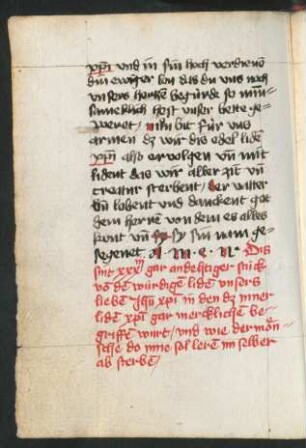 xp̄i vnd in sin hoch verdienē
din ewiger lon das du vns noch
vnsers hertzē begirde so min̄
sameklich hest vnser bette ge-
weret / nu bit für vns
armen dz wir dis edel lidē
xp̄m also ervolgen vn̄ mit
lident das wir alber zit vn̄
creatur sterbent / der
vn̄ lobent vnd danckent got
dem herrē von dem es alles
kont vn̄ sy sin nam ge-
segenet. a. m. e. n. Dis
sint xxx gar andehtiger stück
vō dē würdige lidē vnsers
liebē jhū xp̄i in den dz inner
lidē xp̄i gar mercklichē be-
griffē wurt / vnd wie der mōn
sche do inne sol lerē im selber
ab sterbē /